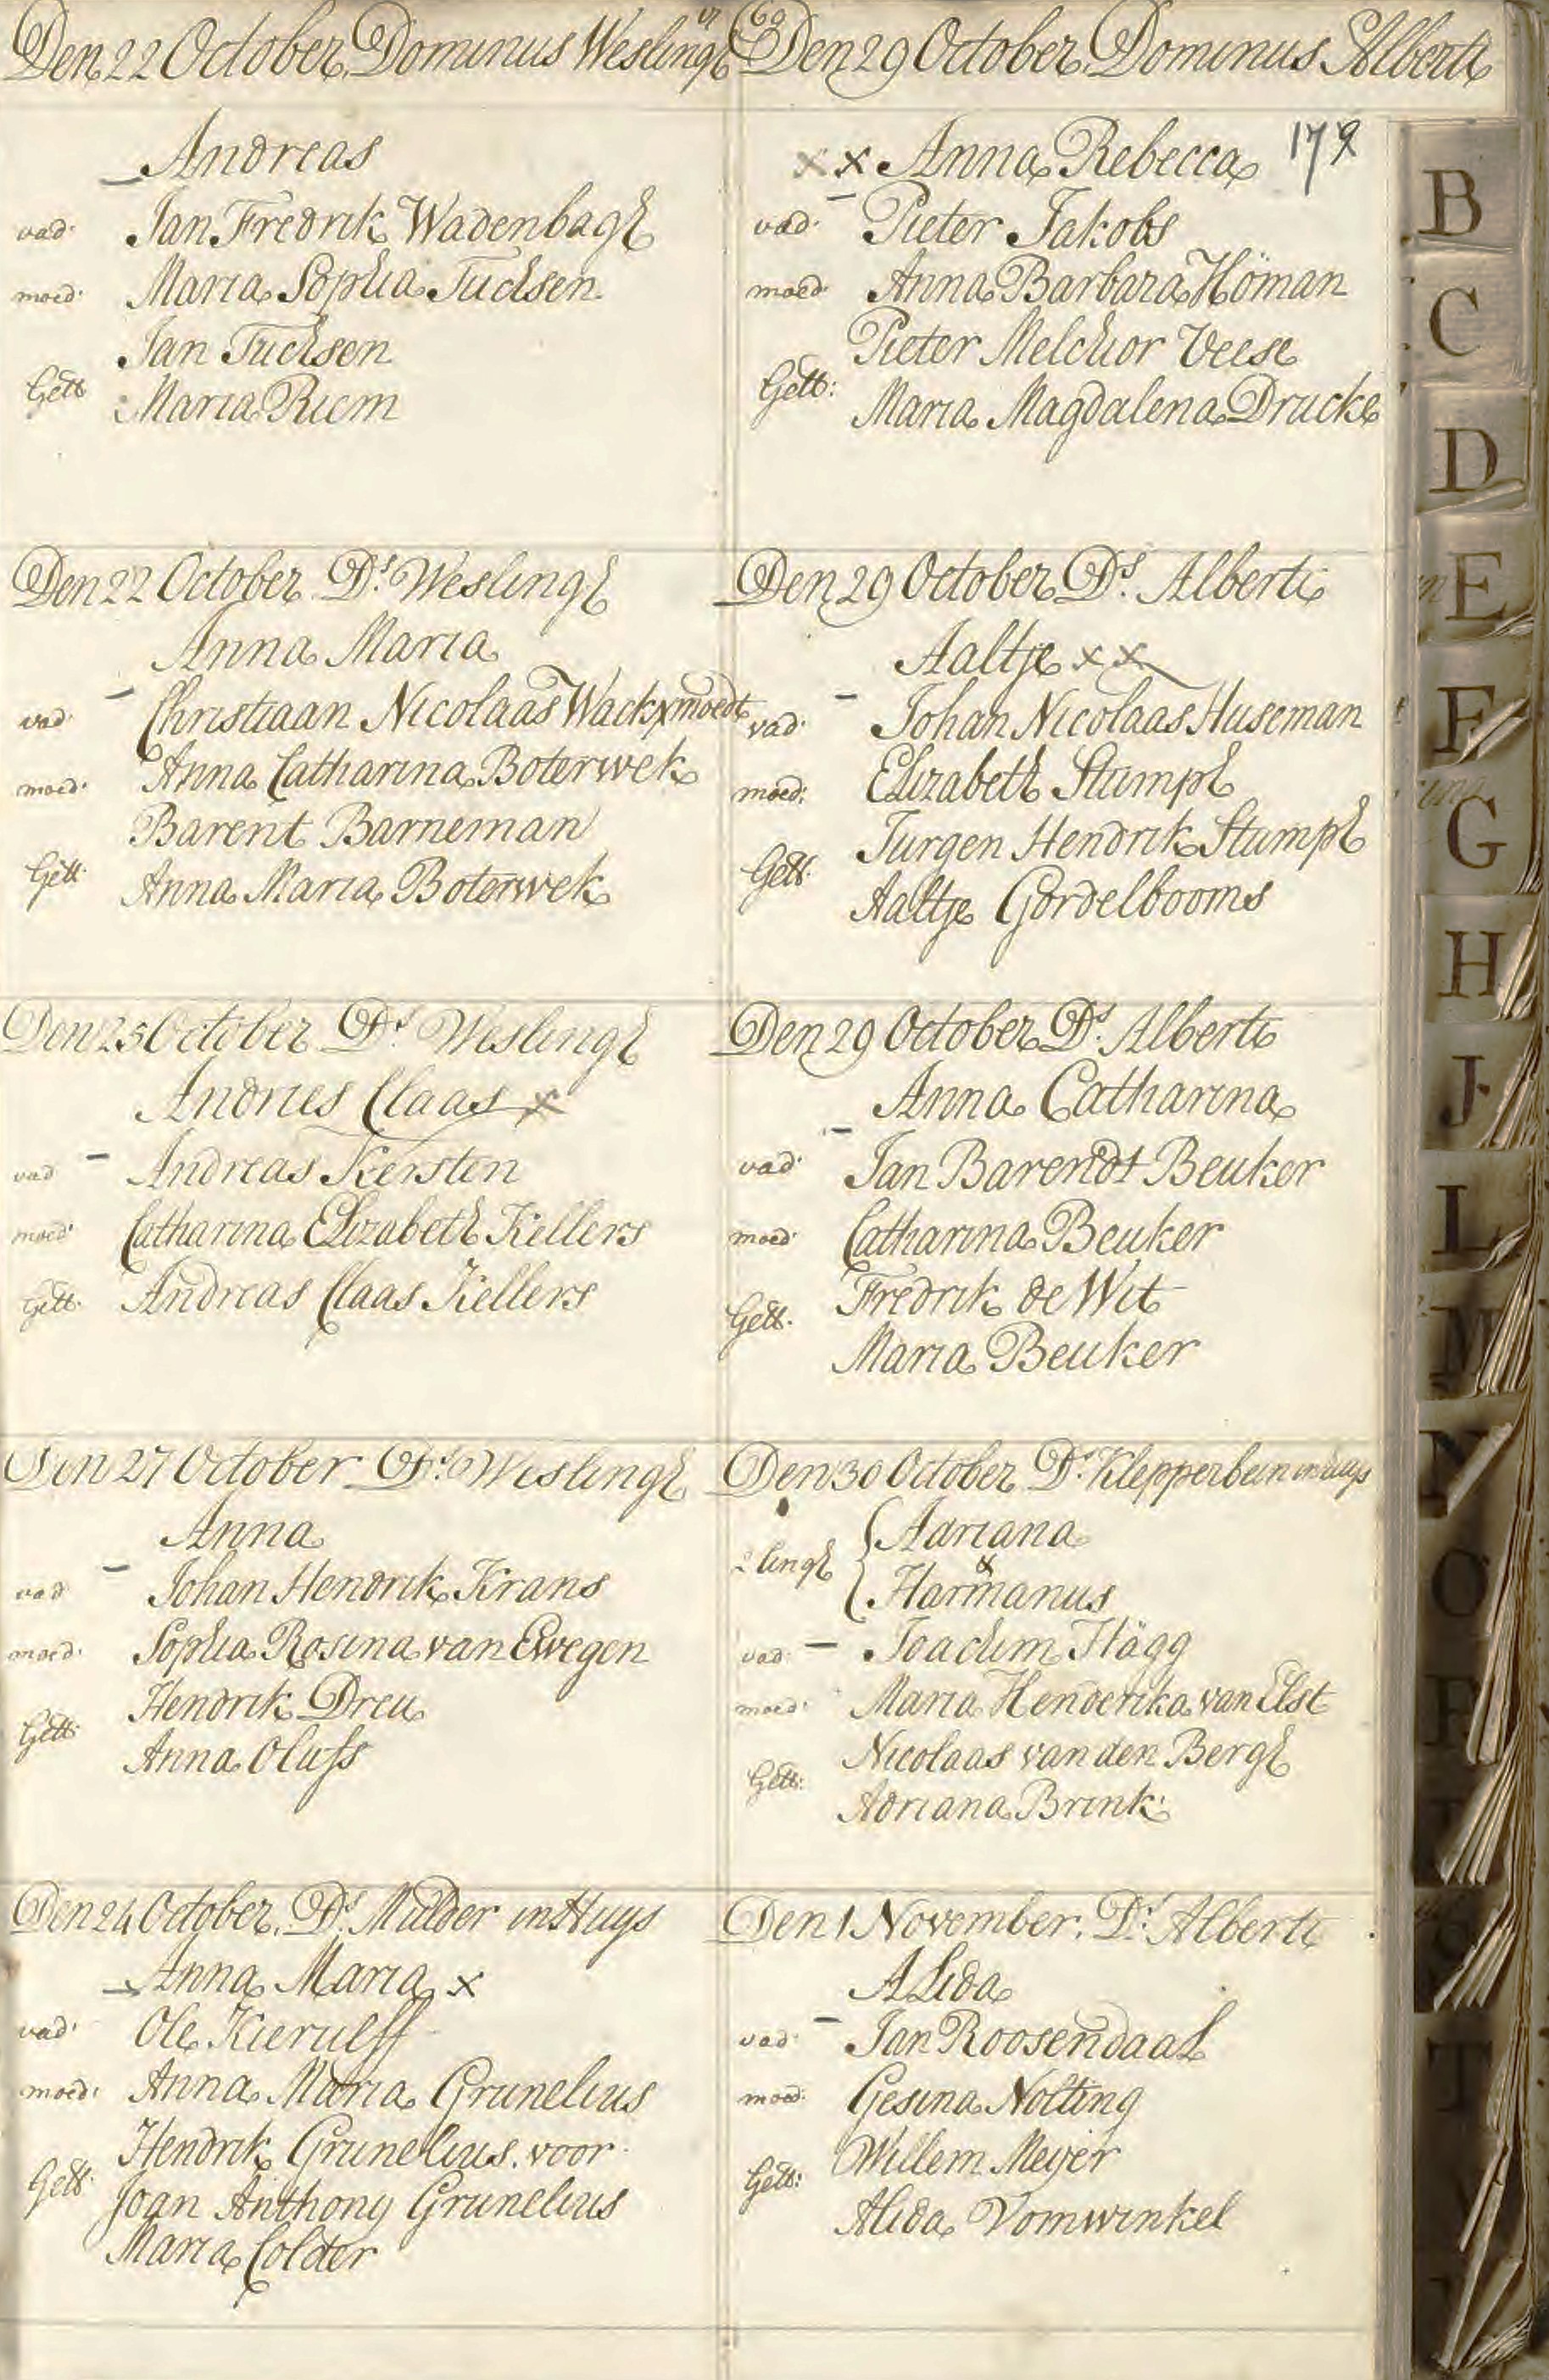 Den 22 October Dominus Weslingh
Andreas
vad: Jan Fredrik Wadenbagh
moed: Maria Sophia Tuchsen
Jan Tuchsen
Gett: Maria Riem
Den 22 October Ds. Weslingh
Anna Maria
vad: Christiaan Nicolaas Wackxmoedt
moed: Anna Catharina Boterwek
Barent Barneman
Gett: Anna Maria Boterwek
Den 25 October Ds. Weslingh
Andries Claas x
vad Andreas Kersten
moed: Catharina Elizabeth Kellers
Gett: Andreas Claas Kellers
Den 27 October Ds. Weslingh
Anna
vad Johan Hendrik Krans
moed: Sophia Rosina van Ewegen
Hendrik Dreu
Gett: Anna Olufs
Den 24 October. Ds. Mulder in Huys
Anna Maria x
vad: Ole Kierulff
moed: Anna Maria Grunelius
Hendrik Grunelius. voor
Gett: Joan Anthony Grunelius
Maria Colder
60
Den 29 October Dominus Alberti
179
x x Anna Rebecca
vad: Pieter Jakobs
moed: Anna Barbara Höman
Pieter Melchior Veese
Gett: Maria Magdalena Drucke
Den 29 October Ds. Alberti
Aaltje x x
vad: Johan Nicolaas Huseman
moed: Elizabeth Stumph
Jurgen Hendrik Stumph
Gett: Aaltje Gordelbooms
Den 29 October Ds. Alberti
Anna Catharina
vad: Jan Barendt Beuker
moed: Catharina Beuker
Fredrik de Wit
Gett: Maria Beuker
Den 30 October Ds. Klepperbein in huys
2 lingh { Adriana
&
Harmanus
vad: Joachim Hägg
moed: Maria Henderika van Elst
Nicolaas van den Bergh
Gett: Adriana Brink
Den 1 November. Ds. Alberti
Alida
vad: Jan Roosendaal
moed: Gesina Nolting
Willem Meyer
Gett: Alida Vomwinkel
B
C
D
E
F
G
H
J
L
M
N
O
P
T